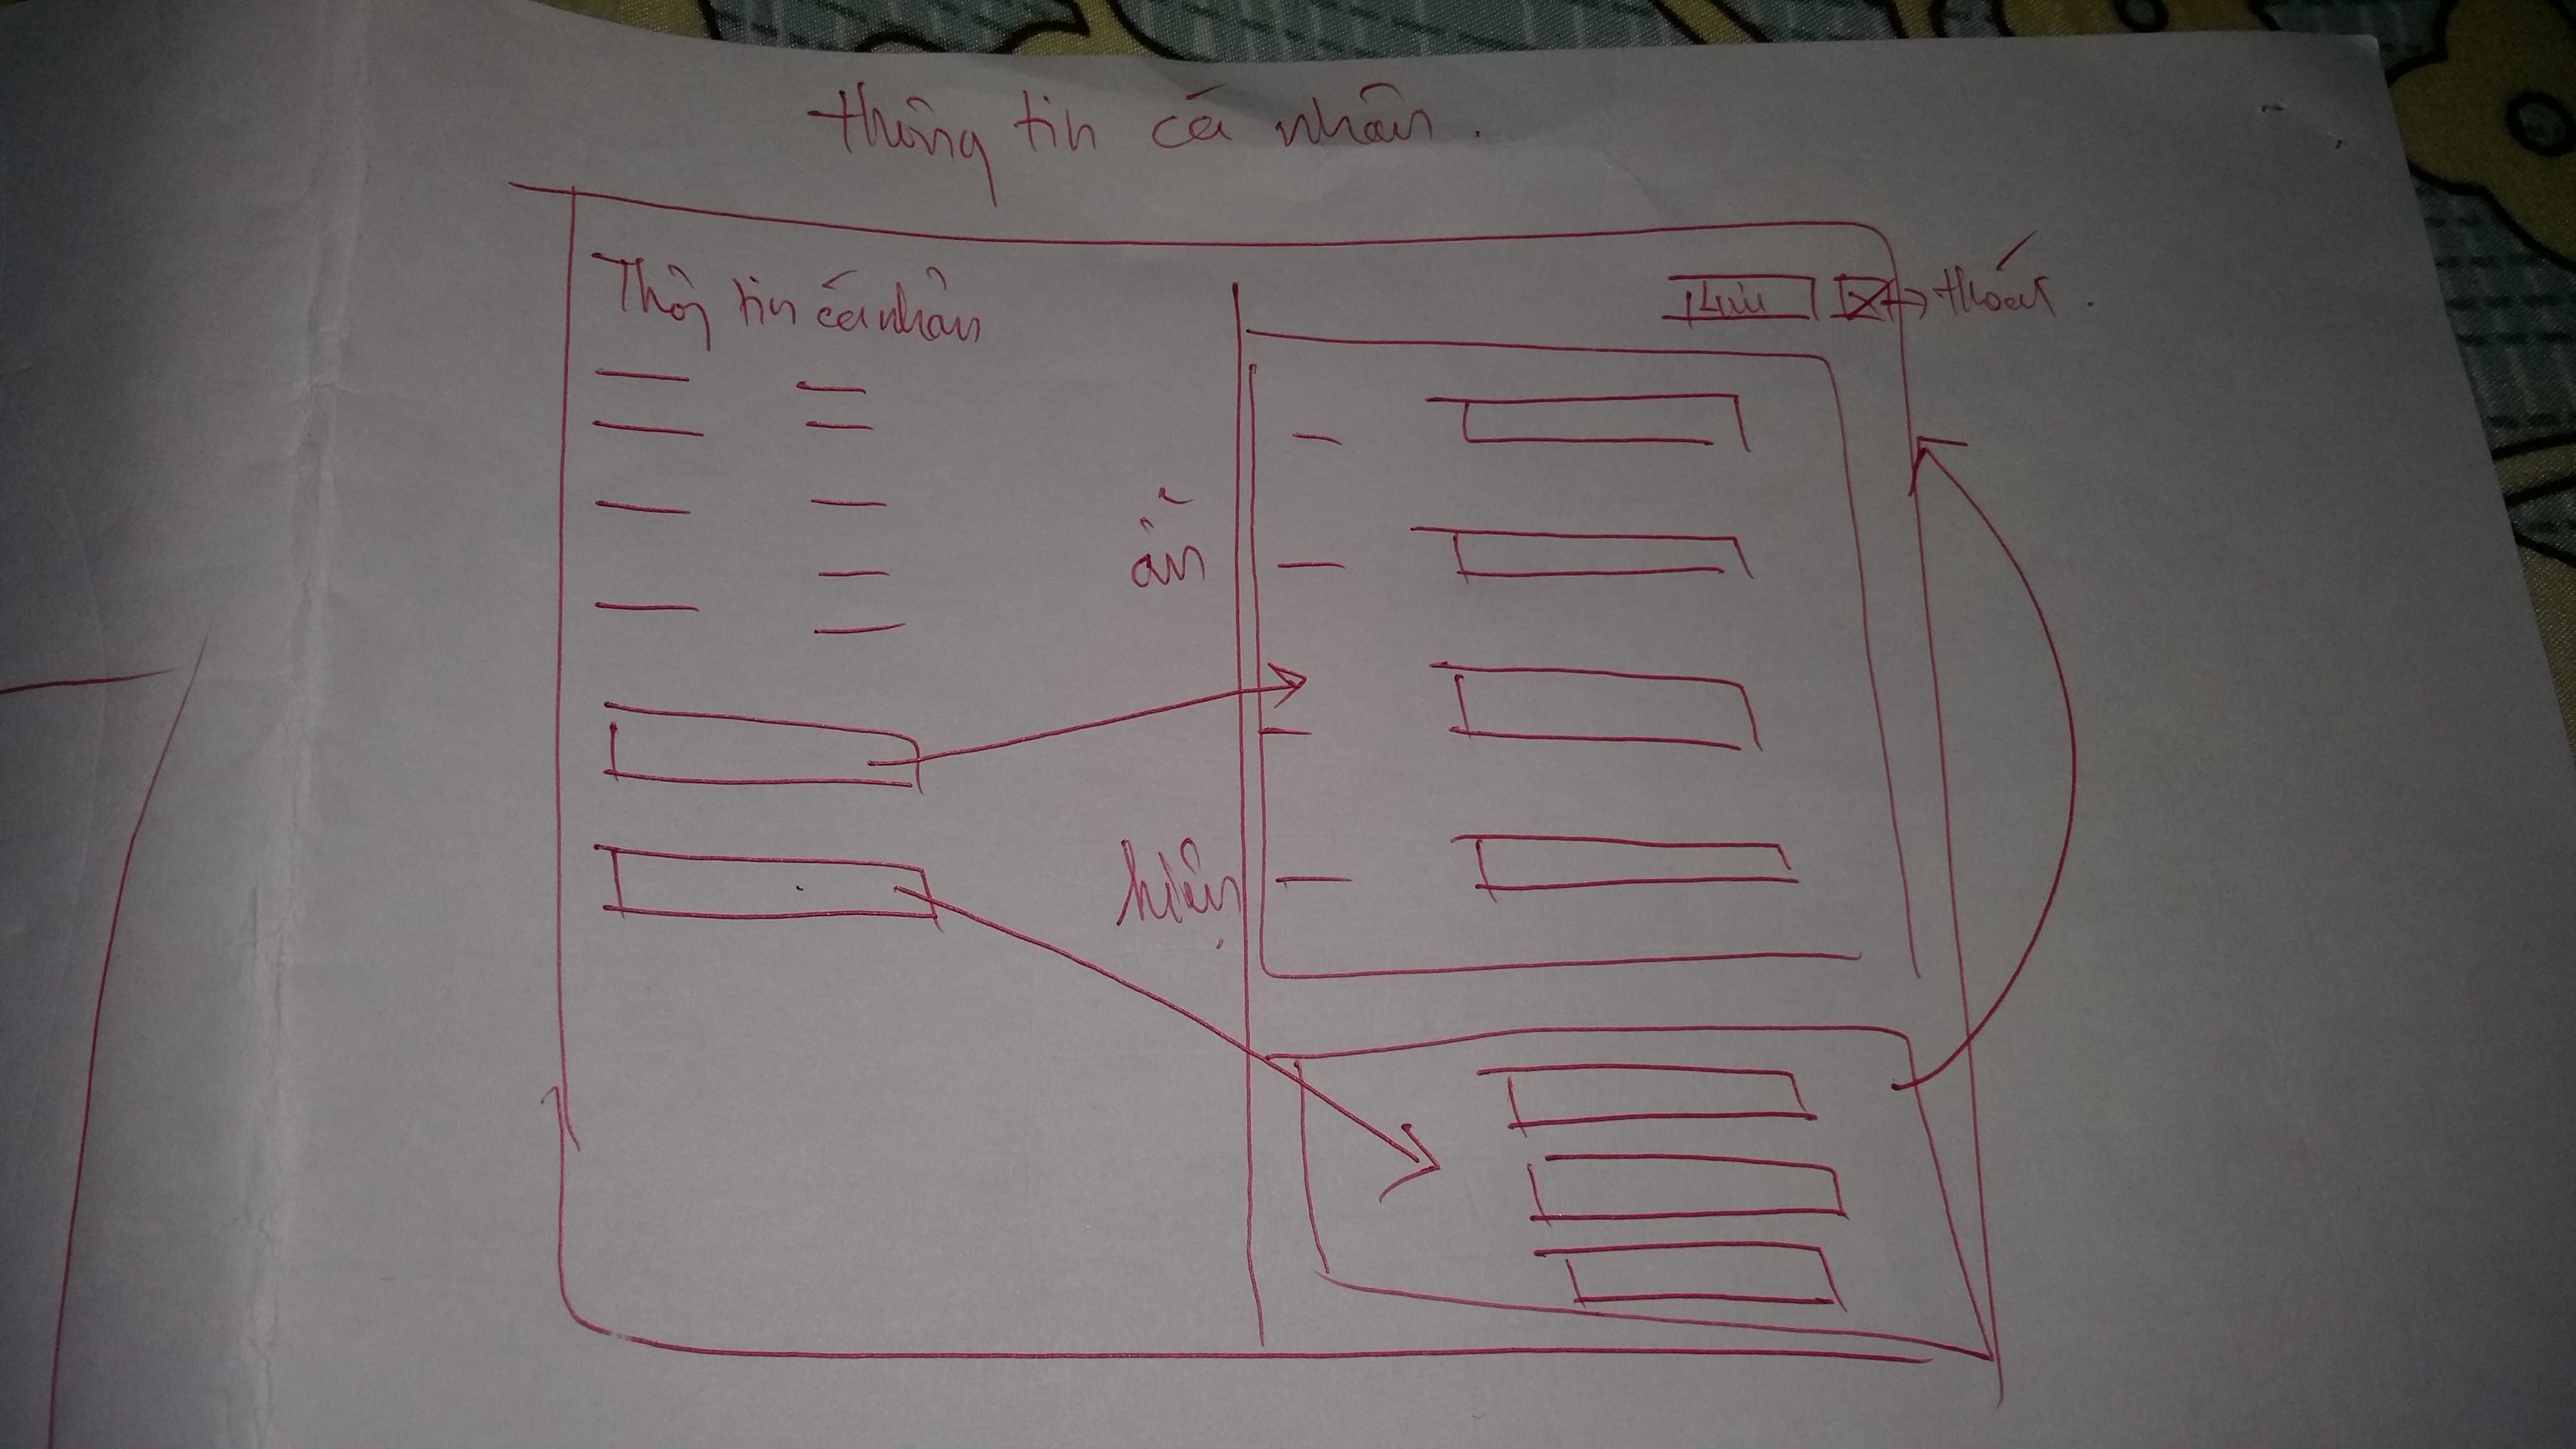 thông tin cá nhân.
Thôg tin cá nhân
Lưu
X → thoát.
ẩn
hiện